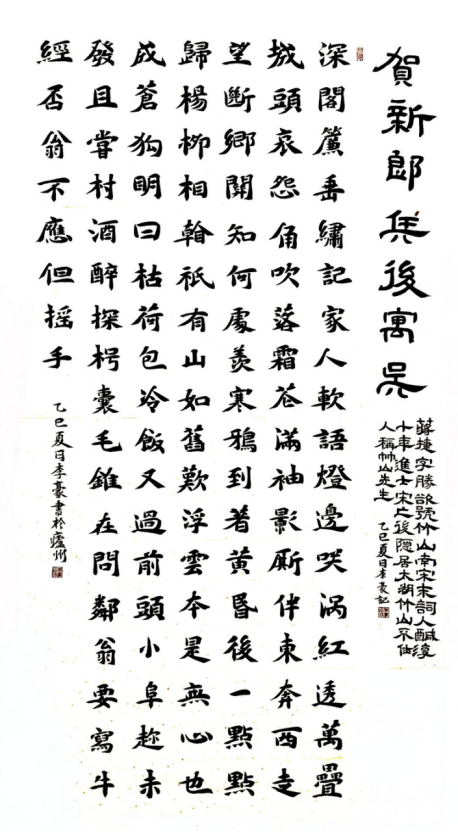 賀新郎 兵後寓吳
蔣捷字勝欲號竹山南宋末詞人鹹淳
十年進士宋亡後隱居太湖竹山不仕
人稱竹山先生 乙巳夏日李豪記
深閣簾垂繡記家人軟語燈邊笑渦紅透萬疊
城頭哀怨角吹落霜花滿袖影厮伴東奔西走
望斷鄉關知何處羨寒鴉到著黃昏後一點點
歸楊柳相翰祇有山如舊歎浮雲本是無心也
成蒼狗明日枯荷包冷飯又過前頭小阜趁未
發且嘗村酒醉探枵囊毛錐在問鄰翁要寫牛
經否翁不應但搖手
乙巳夏日李豪書於瀘州